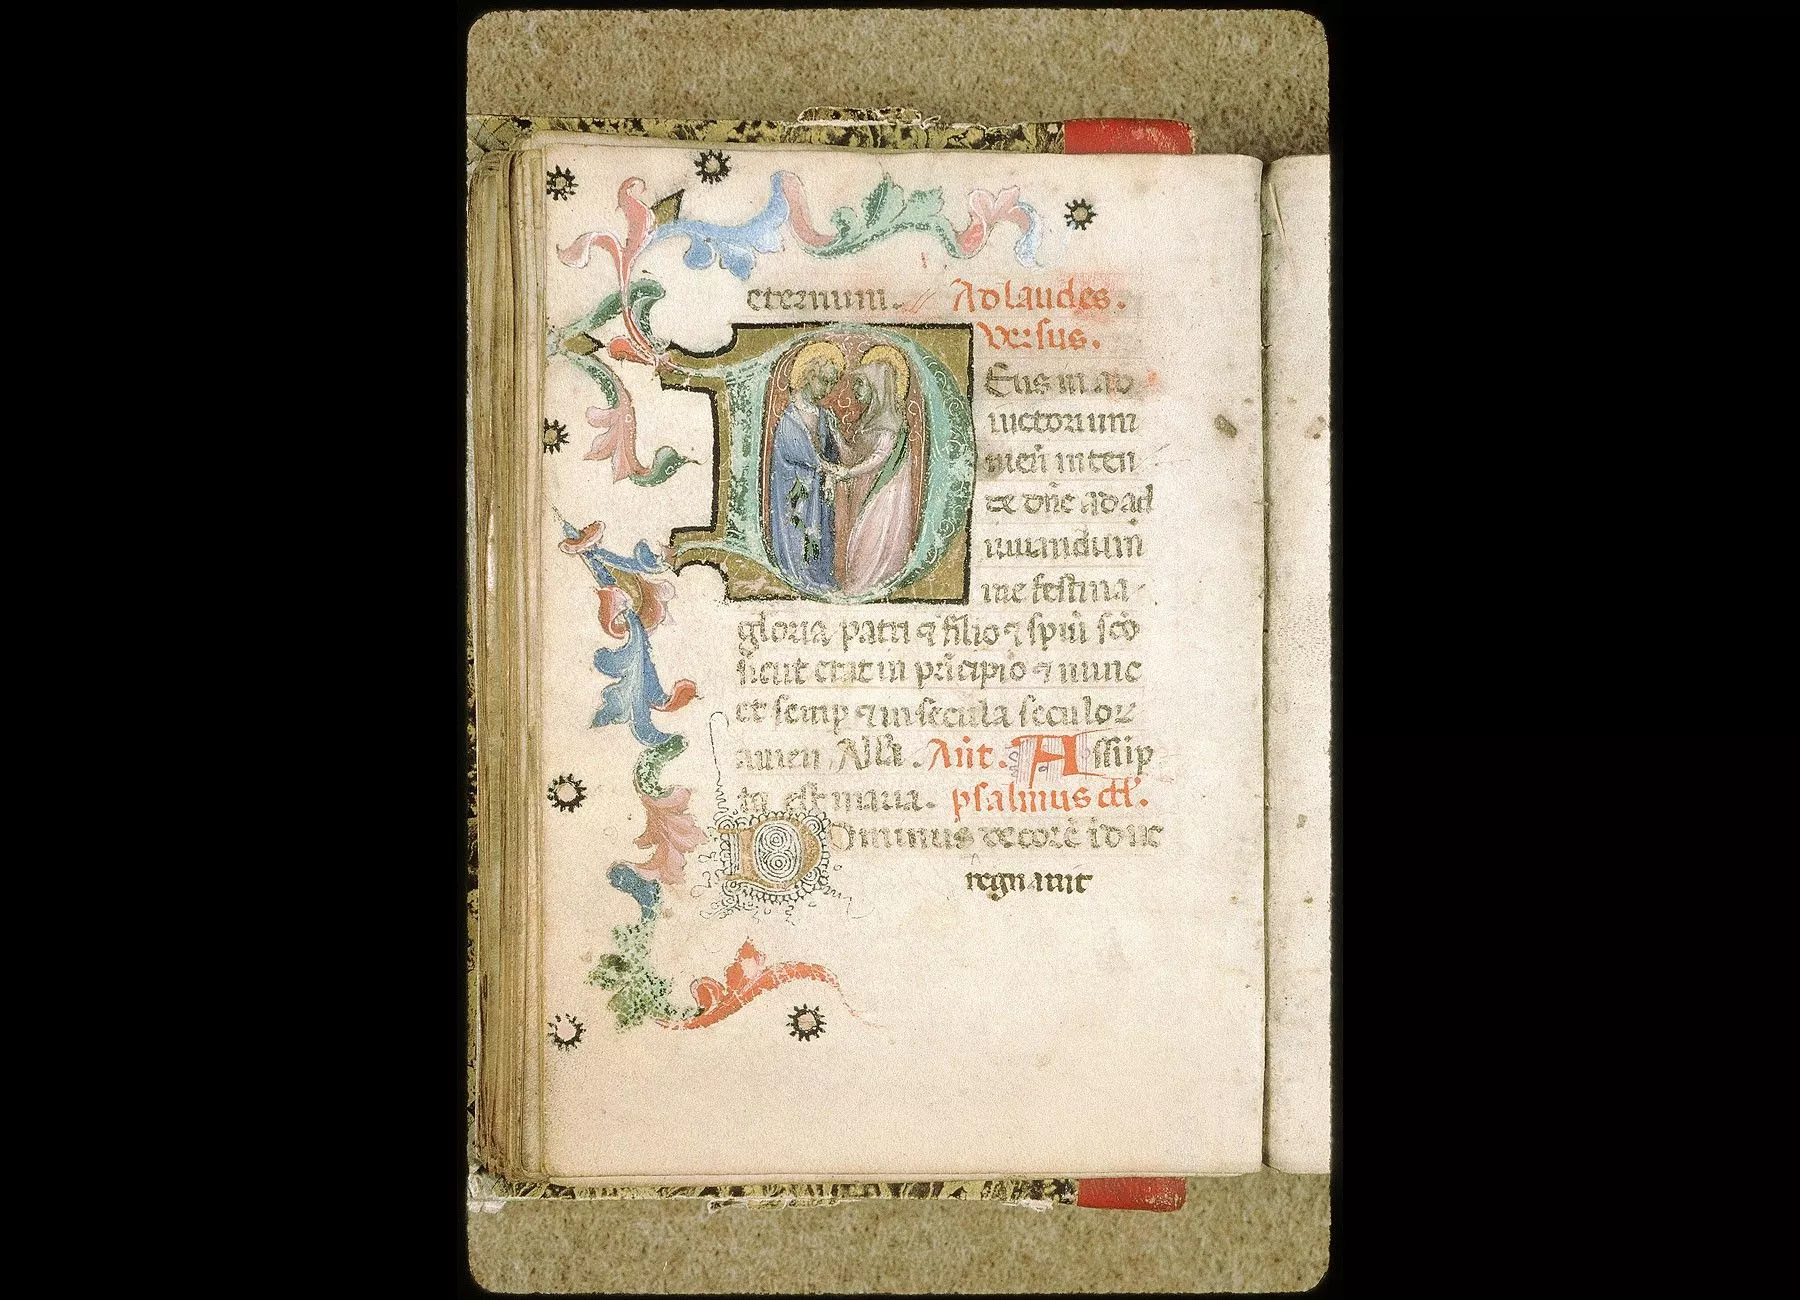 eternum. Ad laudes.
versus.
Deus in ad
iuctorium
meū inten
de dn̄e ad ad
iuuandum̄
me festina
gloria patri ⁊ filio ⁊ spiūi sc̄o
sicut erat in pri̅cipio ⁊ nunc
et semp ⁊ in secula seculoꝝ
amen All̄a. Ān̄t. Assūp
ta est maria. psalmus ctī.
Dominus decorē īdue
regnauit